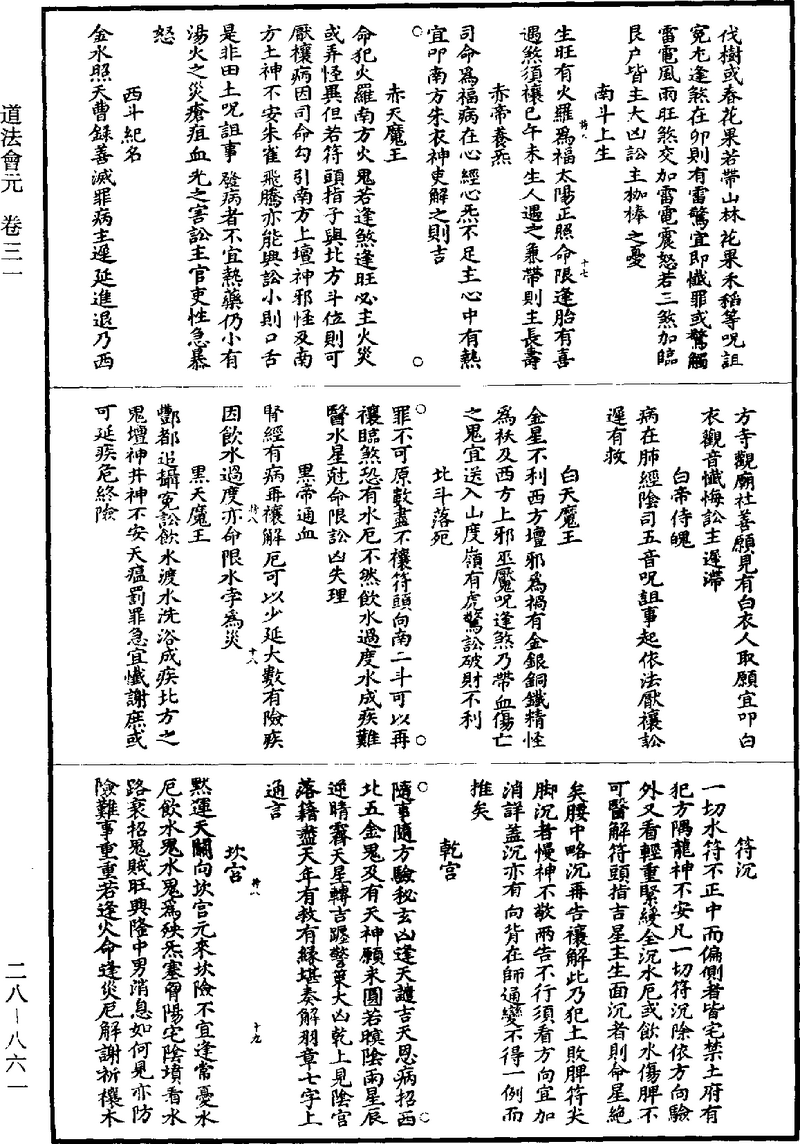 道法會元 卷三一
二八—八六一
伐樹或春花果若帶山林花果禾稻等呪詛
寃尢逢煞在卯則有雷驚宜即懺罪或驚觸
雷電風雨旺煞交加雷電震怒若三煞加臨
艮户皆主大凶訟主枷棒之憂
南斗上生
生旺有火羅為福太陽正照命限逢胎有喜
遇煞須禳巳午未生人遇之兼帶則主長壽
赤帝養炁
司命為福病在心經心炁不足主心中有熱
宜叩南方朱衣神吏解之則吉
赤天魔王
命犯火羅南方火鬼若逢煞逢旺必主火災
或弄怪異但若符頭指子與北方斗位則可
厭禳病因司命勾引南方上壇神邪怪及南
方土神不安朱雀飛騰亦能興訟小則口舌
是非田土呪詛事發病者不宜熱藥仍小有
湯火之災瘡疽血光之害訟主官吏性急暴
怒
西斗紀名
金水照天曹録善滅罪病主遲延進退乃西
方寺觀廟社善願見有白衣人取願宜叩白
衣觀音懺悔訟主遲滯
白帝侍魄
病在肺經陰司五音呪詛事起依法厭禳訟
遲有救
白天魔王
金星不利西方壇邪為禍有金銀銅鐵精怪
為袄及西方上邪巫魘呪逢煞乃帶血傷亡
之鬼宜送入山度嶺有虎驚訟破財不利
北斗落死
罪不可原數盡不禳符頭向南二斗可以再
禳臨煞恐有水厄不然飲水過度水成疾難
醫水星尅命限訟凶失理
黑帝通血
腎經有病再禳解厄可以少延大數有險疾
因飲水過度亦命限水孛為災
黑天魔王
酆都追攝寃訟飲水渡水洗浴成疾北方之
鬼壇神井神不安天瘟罰罪急宜懺謝庶或
可延疾危終險
符沉
一切水符不正中而偏側者皆宅禁土府有
犯方隅龍神不安凡一切符沉除依方向驗
外又看輕重緊緩全沉水厄或飲水傷脾不
可醫解符頭指吉星主生面沉者則命星絶
矣腰中略沉再告禳解此乃犯土敗脾符尖
脚沉者慢神不敬兩告不行須看方向宜加
消詳蓋沉亦有向背在師通變不得一例而
推矣
乾宮
隨事隨方驗秘玄凶逢天譴吉天恩病招西
北五金鬼及有天神願未圓若暝陰雨星辰
逆晴霽天星轉吉躔警策大凶乾上見陰官
落籍盡天年有救有緣堪奏解羽章七字上
通言
坎宮
黙運天關向坎宮元來坎險不宜逢常憂水
厄飲水鬼水鬼為殃炁塞胷陽宅陰墳看水
路衮招鬼賊旺興隆中男消息如何見亦防
險難事重重若逢火命逢災厄解謝祈禳木